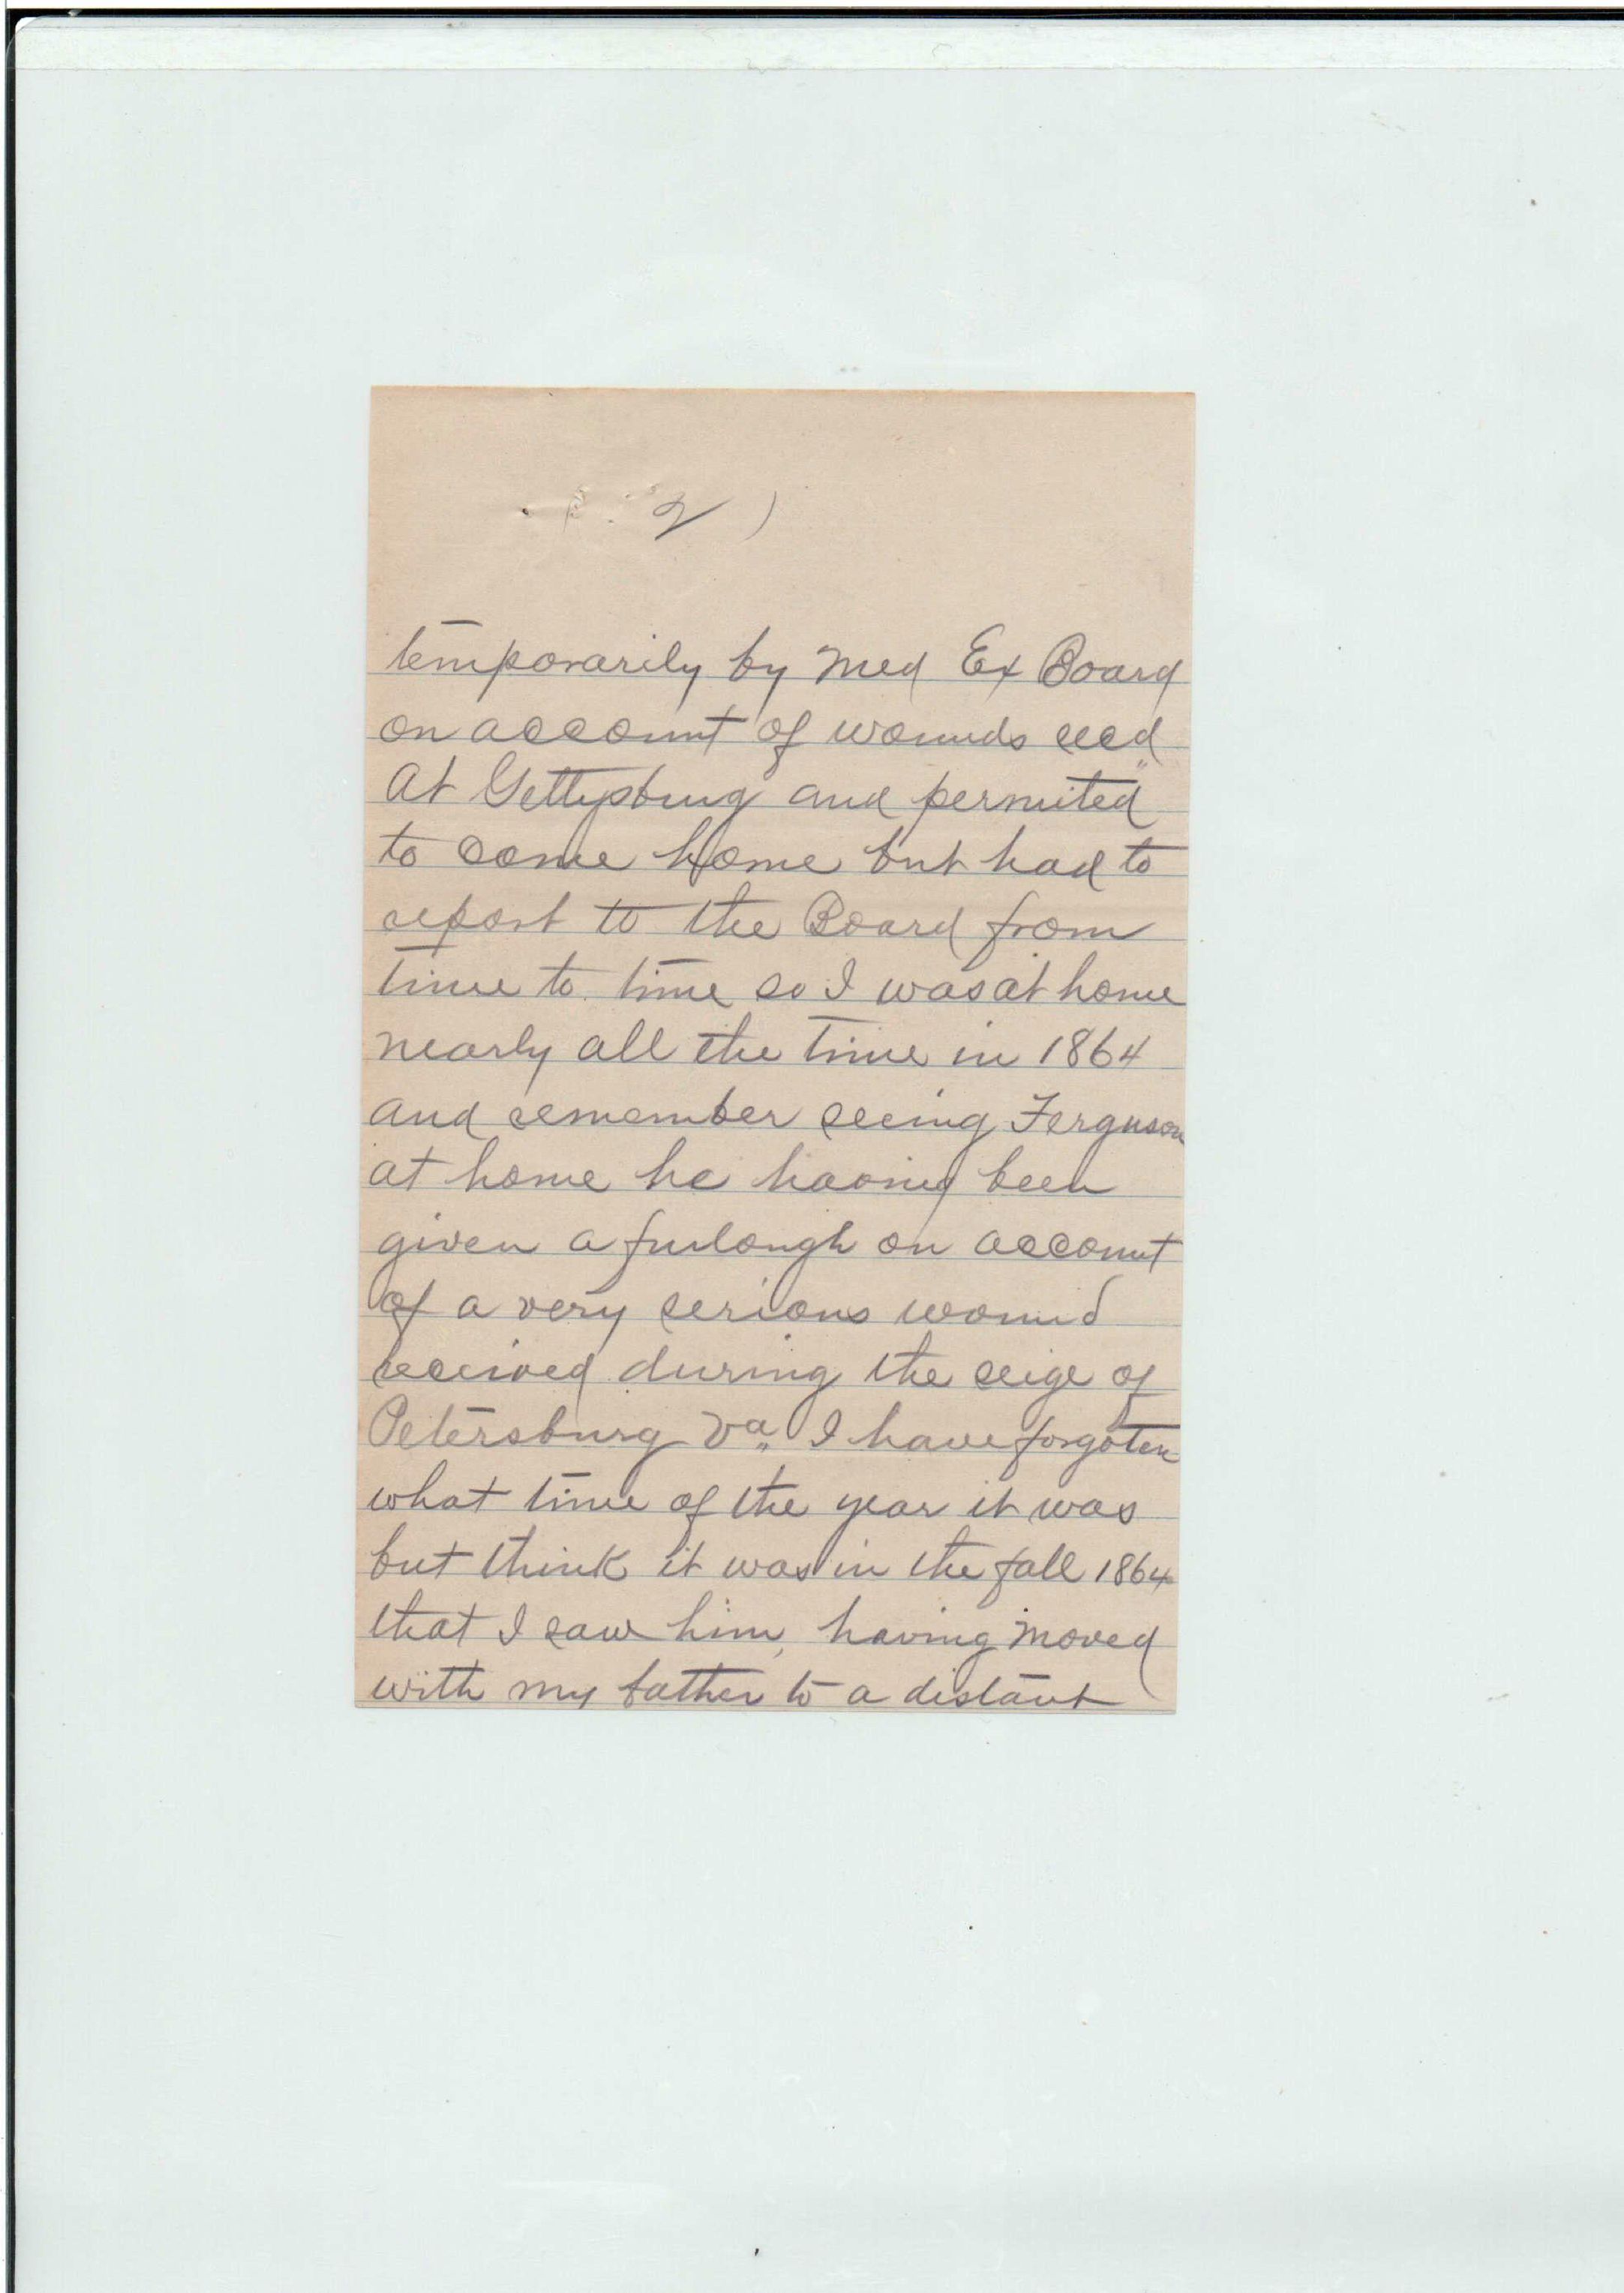 ( 2 )
temporarily by Med Ex Board
on account of wounds recd
at Gettysburg and permited
to come home but had to
report to the Board from
time to time so I was at home
nearly all the time in 1864
and remember seeing Ferguson
at home he having been
given a furlough on account
of a very serious wound
received during the seige of
Petersburg Va. I have forgoten
what time of the year it was
but think it was in the fall 1864
that I saw him, having moved
with my father to a distant